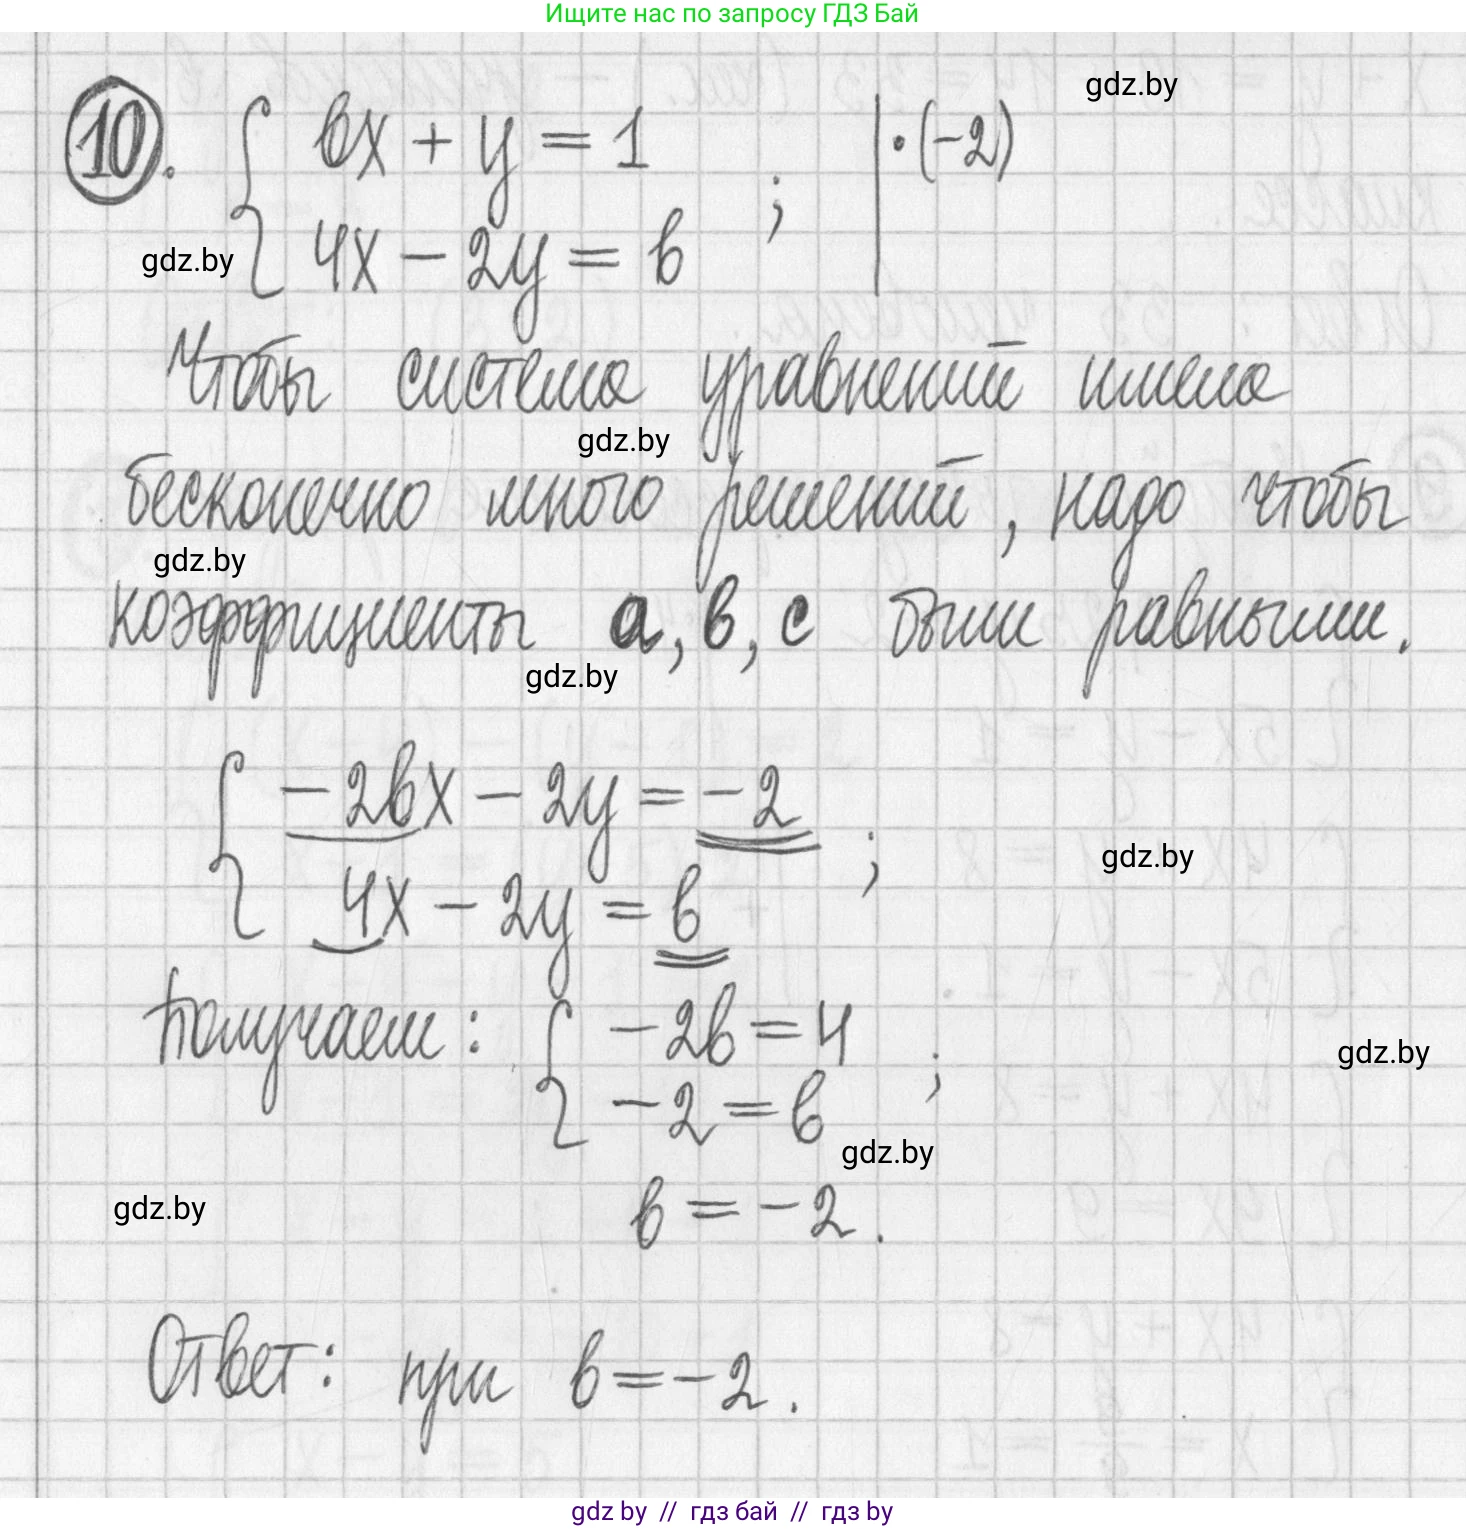 Ищите нас по запросу ГДЗ Бай
gdz.by
10. { вх + у = 1 ; | · (-2)
4х - 2у = в
gdz.by
Чтобы система уравнений имела
gdz.by
бесконечно много решений, надо чтобы
gdz.by
коэффициенты а, в, с были равными.
gdz.by
{ -2вх - 2у = -2 ;
gdz.by
4х - 2у = в
Получаем: { -2в = 4 ;
gdz.by
-2 = в
gdz.by
gdz.by
в = -2.
Ответ: при в = -2.
gdz by // гдз бай // гдз by